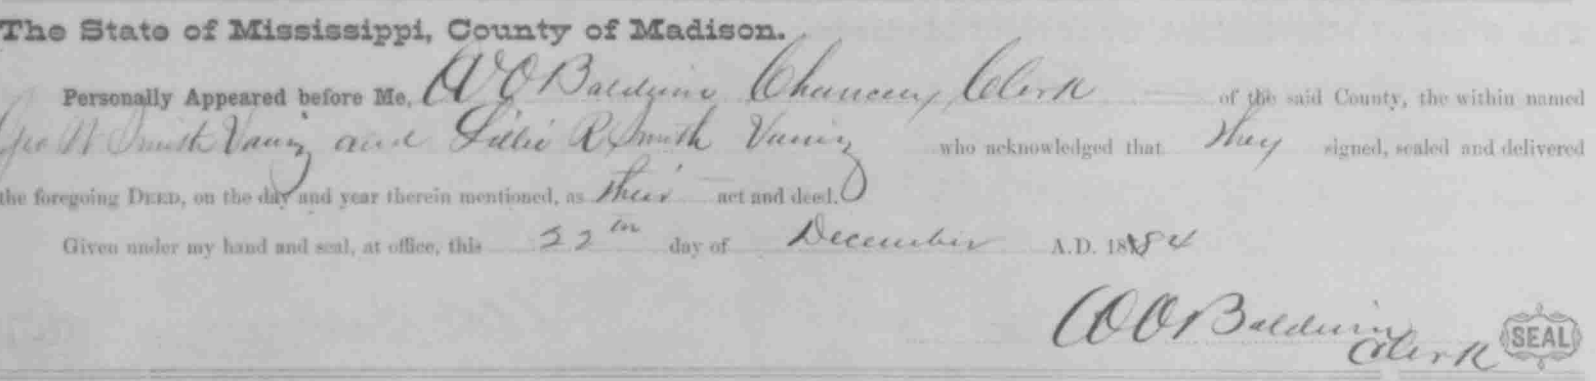 The State of Mississippi, County of Madison.
Personally Appeared before Me, W O Baldwin Chancery Clerk of the said County, the within named
Geo W Smith Vaniz and Lillie R Smith Vaniz who acknowledged that they signed, sealed and delivered
the foregoing DEED, on the day and year therein mentioned, as their act and deed.
Given under my hand and seal, at office, this 22nd day of December A.D. 1884
W O Baldwin
Clerk SEAL